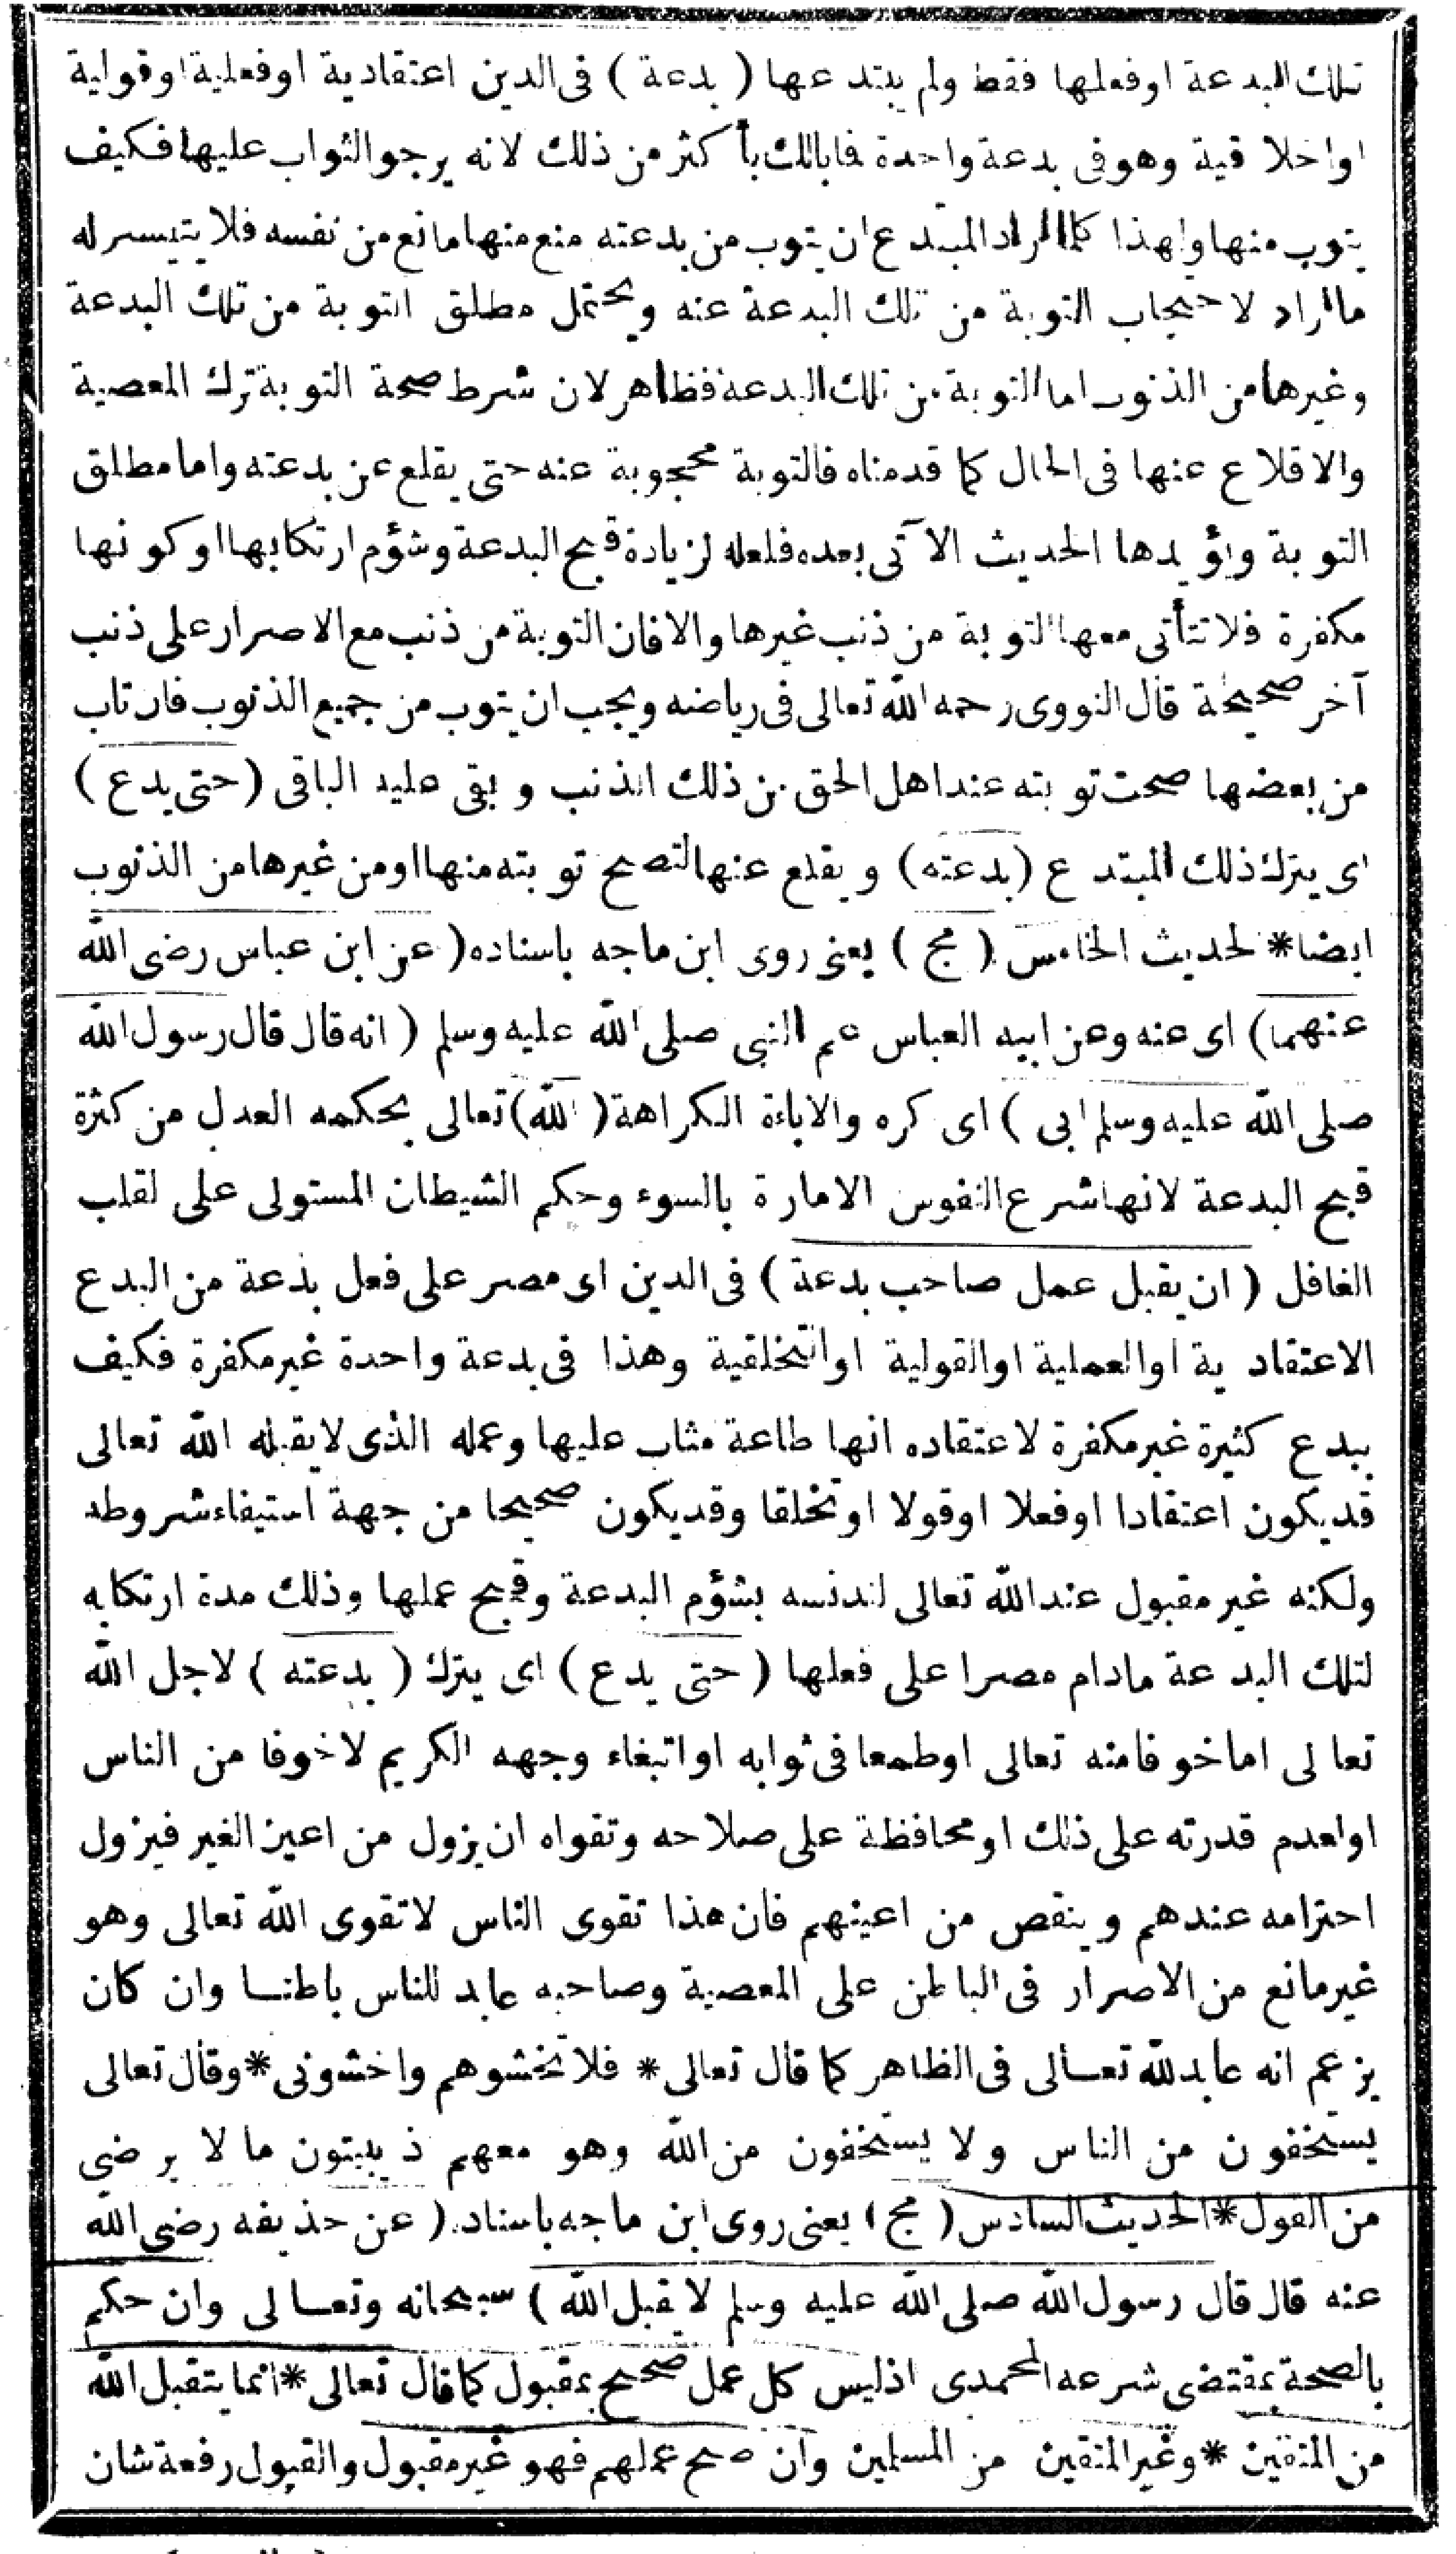 تلك البدعة او فعلها فقط ولم يبتدعها ( بدعة ) فى الدين اعتقادية او فعلية او قولية
او اخلاقية وهو فى بدعة واحدة فابالك بأكثر من ذلك لانه يرجو الثواب عليها فكيف
يتوب منها ولهذا كلما اراد المبتدع ان يتوب من بدعته منع منها مانع من نفسه فلا يتيسر له
ما اراد لاحتجاب التوبة من تلك البدعة عنه ويحتمل مطلق التوبة من تلك البدعة
وغيرها من الذنوب اما التوبة من تلك البدعة فظاهر لان شرط صحة التوبة ترك المعصية
والاقلاع عنها فى الحال كما قدمناه فالتوبة محجوبة عنه حتى يقلع عن بدعته واما مطلق
التوبة ويؤيدها الحديث الآتى بعده فلعله لزيادة قبح البدعة وشؤم ارتكابها او كونها
مكفرة فلا تتأتى معها التوبة من ذنب غيرها والا فان التوبة من ذنب مع الاصرار على ذنب
آخر صحيحة قال النووى رحمه الله تعالى فى رياضه ويجب ان يتوب من جميع الذنوب فان تاب
من بعضها صحت توبته عند اهل الحق من ذلك الذنب وبقى عليه الباقى ( حتى يدع )
اى يترك ذلك المبتدع ( بدعته ) ويقلع عنها لتصح توبته منها او من غيرها من الذنوب
ايضا * لحديث الخامس ( مج ) يعنى روى ابن ماجه باسناده ( عن ابن عباس رضى الله
عنهما ) اى عنه وعن ابيه العباس عم النبى صلى الله عليه وسلم ( انه قال قال رسول الله
صلى الله عليه وسلم ابى ) اى كره والاباءة الكراهة ( الله ) تعالى بحكمه العدل من كثرة
قبح البدعة لانها شرع النفوس الامارة بالسوء وحكم الشيطان المستولى على لقلب
الغافل ( ان يقبل عمل صاحب بدعة ) فى الدين اى مصر على فعل بدعة من البدع
الاعتقادية او العملية او القولية او التخلقية وهذا فى بدعة واحدة غير مكفرة فكيف
ببدع كثيرة غير مكفرة لاعتقاده انها طاعة مثاب عليها وعمله الذى لا يقبله الله تعالى
قد يكون اعتقادا او فعلا او قولا او تخلقا وقد يكون صحيحا من جهة استيفاء شروطه
ولكنه غير مقبول عند الله تعالى لتدنسه بشؤم البدعة وقبح عملها وذلك مدة ارتكابه
لتلك البدعة مادام مصرا على فعلها ( حتى يدع ) اى يترك ( بدعته ) لاجل الله
تعالى اما خوفا منه تعالى او طمعا فى ثوابه او اتبغاء وجهه الكريم لا خوفا من الناس
او لعدم قدرته على ذلك او محافظة على صلاحه وتقواه ان يزول من اعين الغير فيزول
احترامه عندهم وينقص من اعينهم فان هذا تقوى الناس لا تقوى الله تعالى وهو
غير مانع من الاصرار فى الباطن على المعصية وصاحبه عابد للناس باطنا وان كان
يزعم انه عابد لله تعالى فى الظاهر كما قال تعالى * فلا تخشوهم واخشونى * وقال تعالى
يستخفون من الناس ولا يستخفون من الله وهو معهم اذ يبيتون ما لا يرضى
من القول * الحديث السادس ( مج ) يعنى روى ابن ماجه باسناده ( عن حذيفه رضى الله
عنه قال قال رسول الله صلى الله عليه وسلم لا يقبل الله ) سبحانه وتعالى وان حكم
بالصحة بمقتضى شرعه المحمدى اذ ليس كل عمل صحيح بمقبول كما قال تعالى * انما يتقبل الله
من المتقين * وغير المتقين من المسلمين وان صح عملهم فهو غير مقبول والقبول رفعة شان